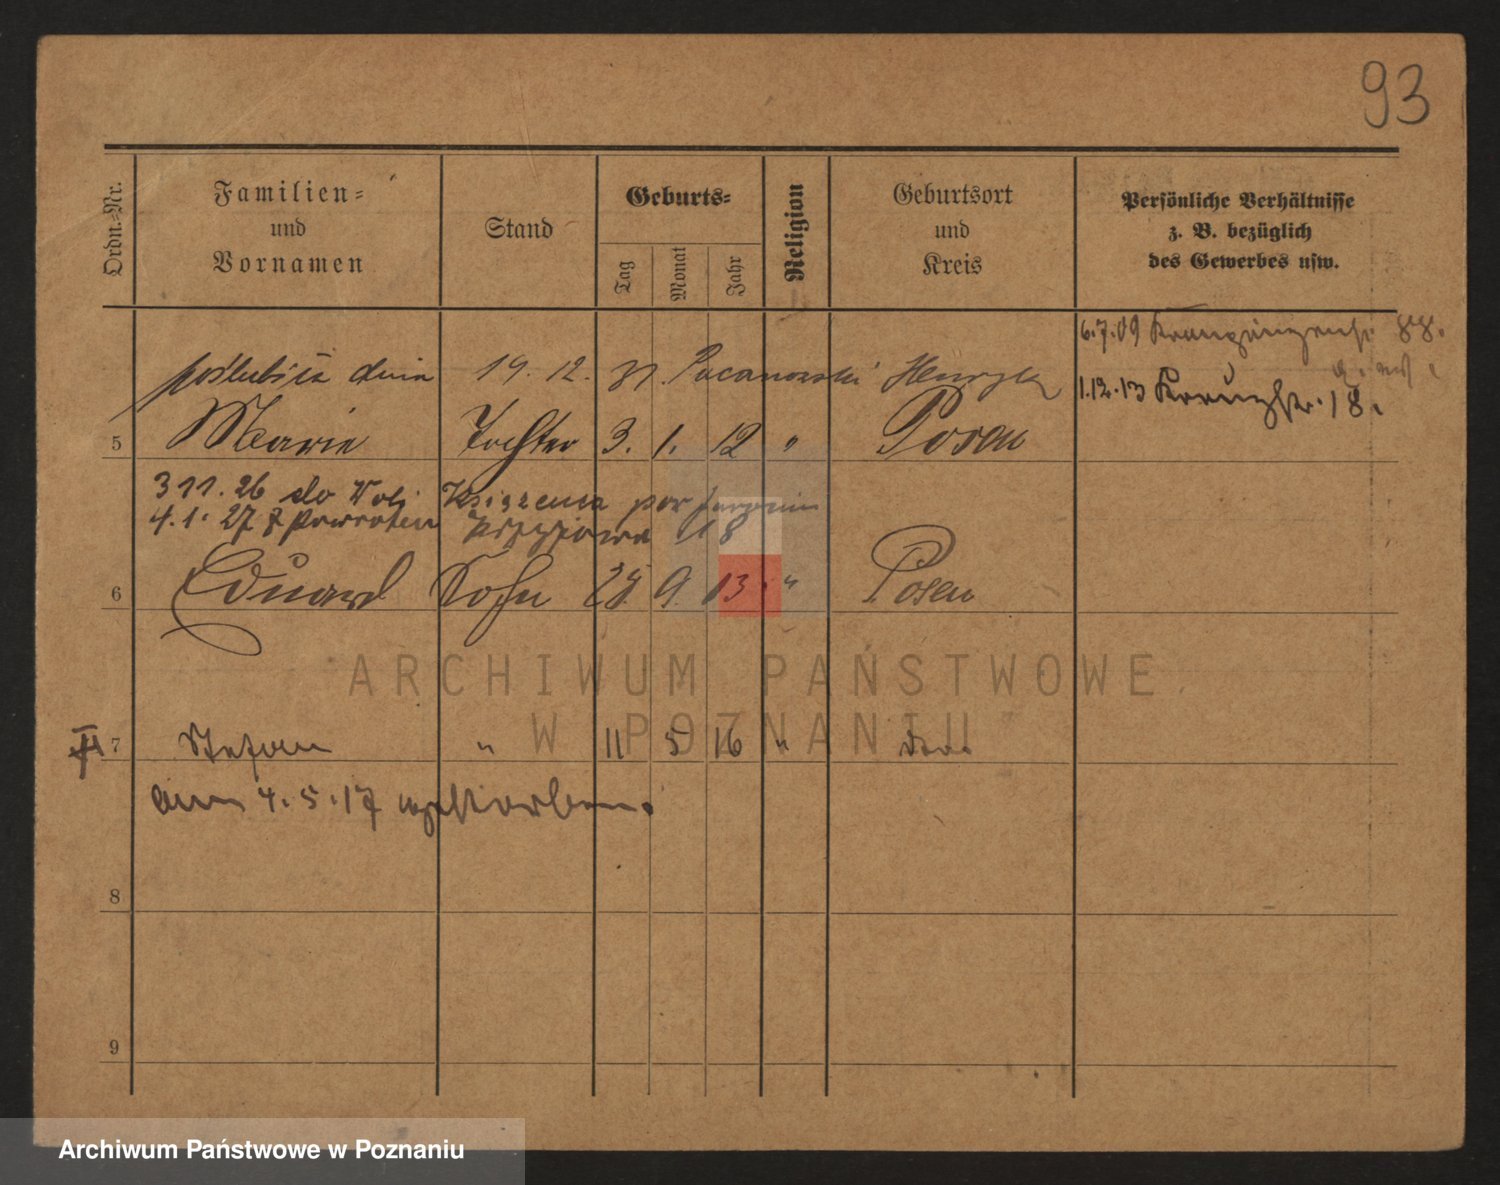 93
Ordn.-Nr.
Familien-
und
Vornamen
Stand
Geburts-
Tag
Monat
Jahr
Religion
Geburtsort
und
Kreis
Persönliche Verhältnisse
z. B. bezüglich
des Gewerbes usw.
6.7.09
1.12.13 Kreuzstr. 18.
poślubiła dnia 19. 12. Pacanowski Henryk
5 Marie Tochter 3. 1. 12 " Posen
3 11. 26 do Woli Książęca pow Jarocin
4. 1. 27 z powrotem 18
6 Eduard Sohn 9. 13. " Posen
7 Stefan " 11 5 16 "
am 4.5.17 verstorben.
8
9
ARCHIWUM PAŃSTWOWE
W POZNANIU
Archiwum Państwowe w Poznaniu